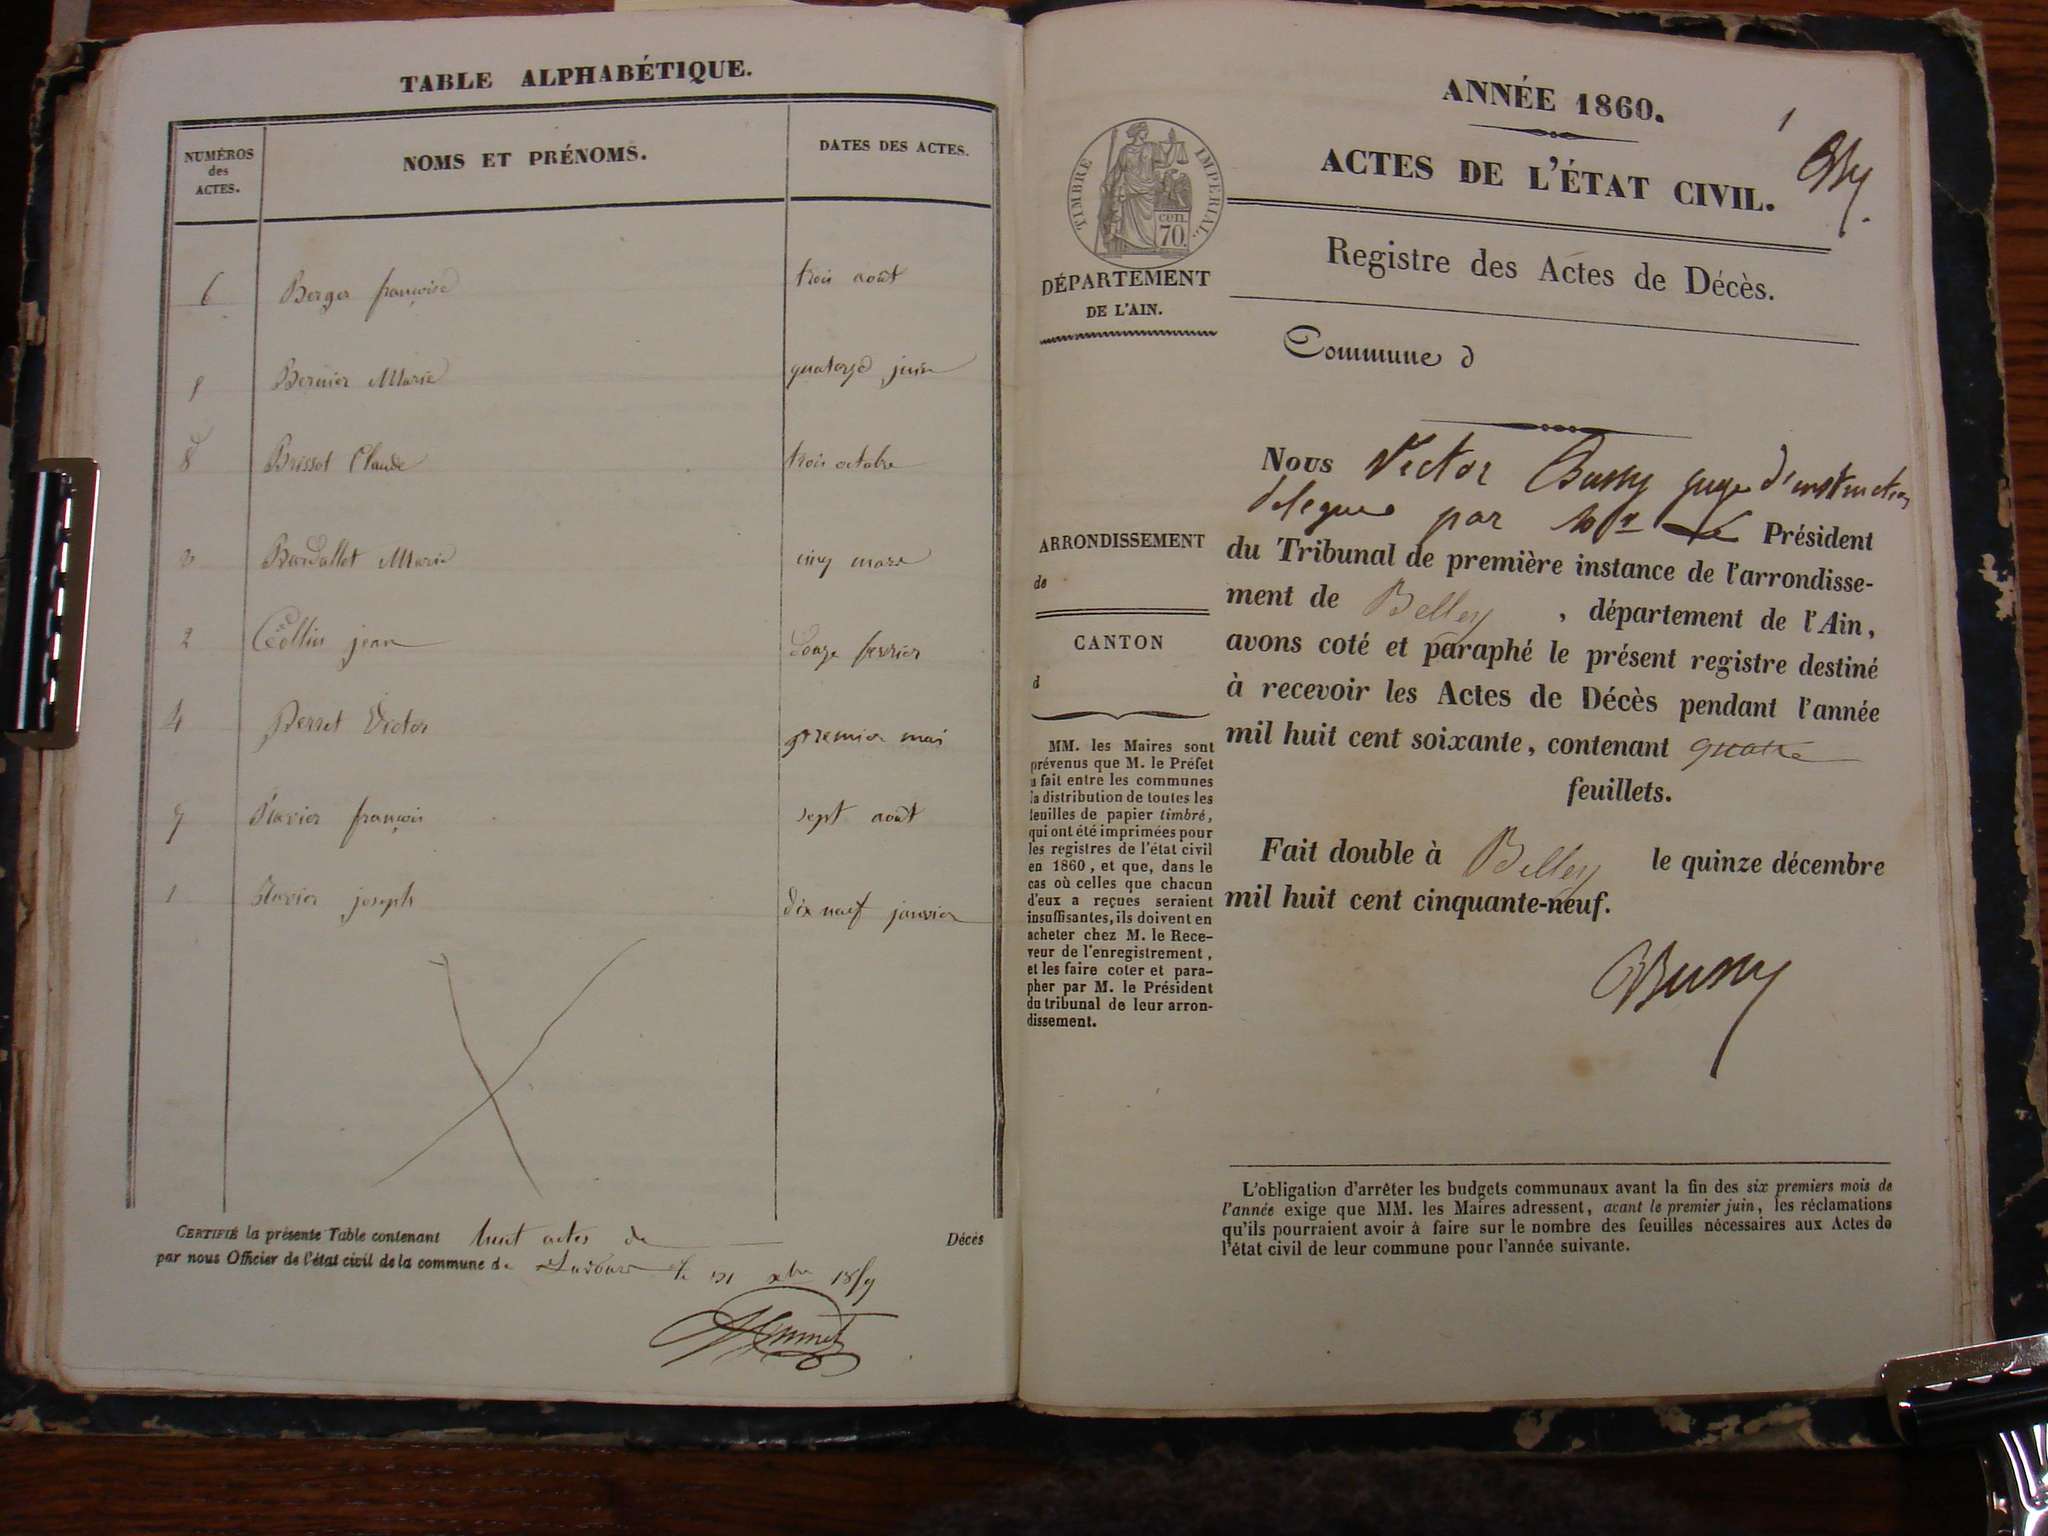 TABLE ALPHABÉTIQUE.
NUMÉROS
des
ACTES.
NOMS ET PRÉNOMS.
DATES DES ACTES.
6 Berger françoise trois août
5 Bernier Marie quatorze juin
8 Brissot Claude trois octobre
3 Marie cinq mars
2 Collin jean douze fevrier
4 Perret Victor premier mai
7 françois sept août
1 joseph dix neuf janvier
CERTIFIÉ la présente Table contenant huit actes de Décès
par nous Officier de l'état civil de la commune de le 31 xbre 1859
ANNÉE 1860.
1
ACTES DE L'ÉTAT CIVIL.
TIMBRE IMPÉRIAL.
CUTI.
70.
DÉPARTEMENT
DE L'AIN.
Registre des Actes de Décès.
Commune d
Nous Victor Bussy juge d'instruction
delegue par Mr le Président
du Tribunal de première instance de l'arrondisse-
ment de Belley , département de l'Ain,
avons coté et paraphé le présent registre destiné
à recevoir les Actes de Décès pendant l'année
mil huit cent soixante, contenant quatre
feuillets.
Fait double à Belley le quinze décembre
mil huit cent cinquante-neuf.
Bussy
ARRONDISSEMENT
de
CANTON
d
MM. les Maires sont
prévenus que M. le Préfet
a fait entre les communes
la distribution de toutes les
feuilles de papier timbré,
qui ont été imprimées pour
les registres de l'état civil
en 1860, et que, dans le
cas où celles que chacun
d'eux a reçues seraient
insuffisantes, ils doivent en
acheter chez M. le Rece-
veur de l'enregistrement,
et les faire coter et para-
pher par M. le Président
du tribunal de leur arron-
dissement.
L'obligation d'arrêter les budgets communaux avant la fin des six premiers mois de
l'année exige que MM. les Maires adressent, avant le premier juin, les réclamations
qu'ils pourraient avoir à faire sur le nombre des feuilles nécessaires aux Actes de
l'état civil de leur commune pour l'année suivante.